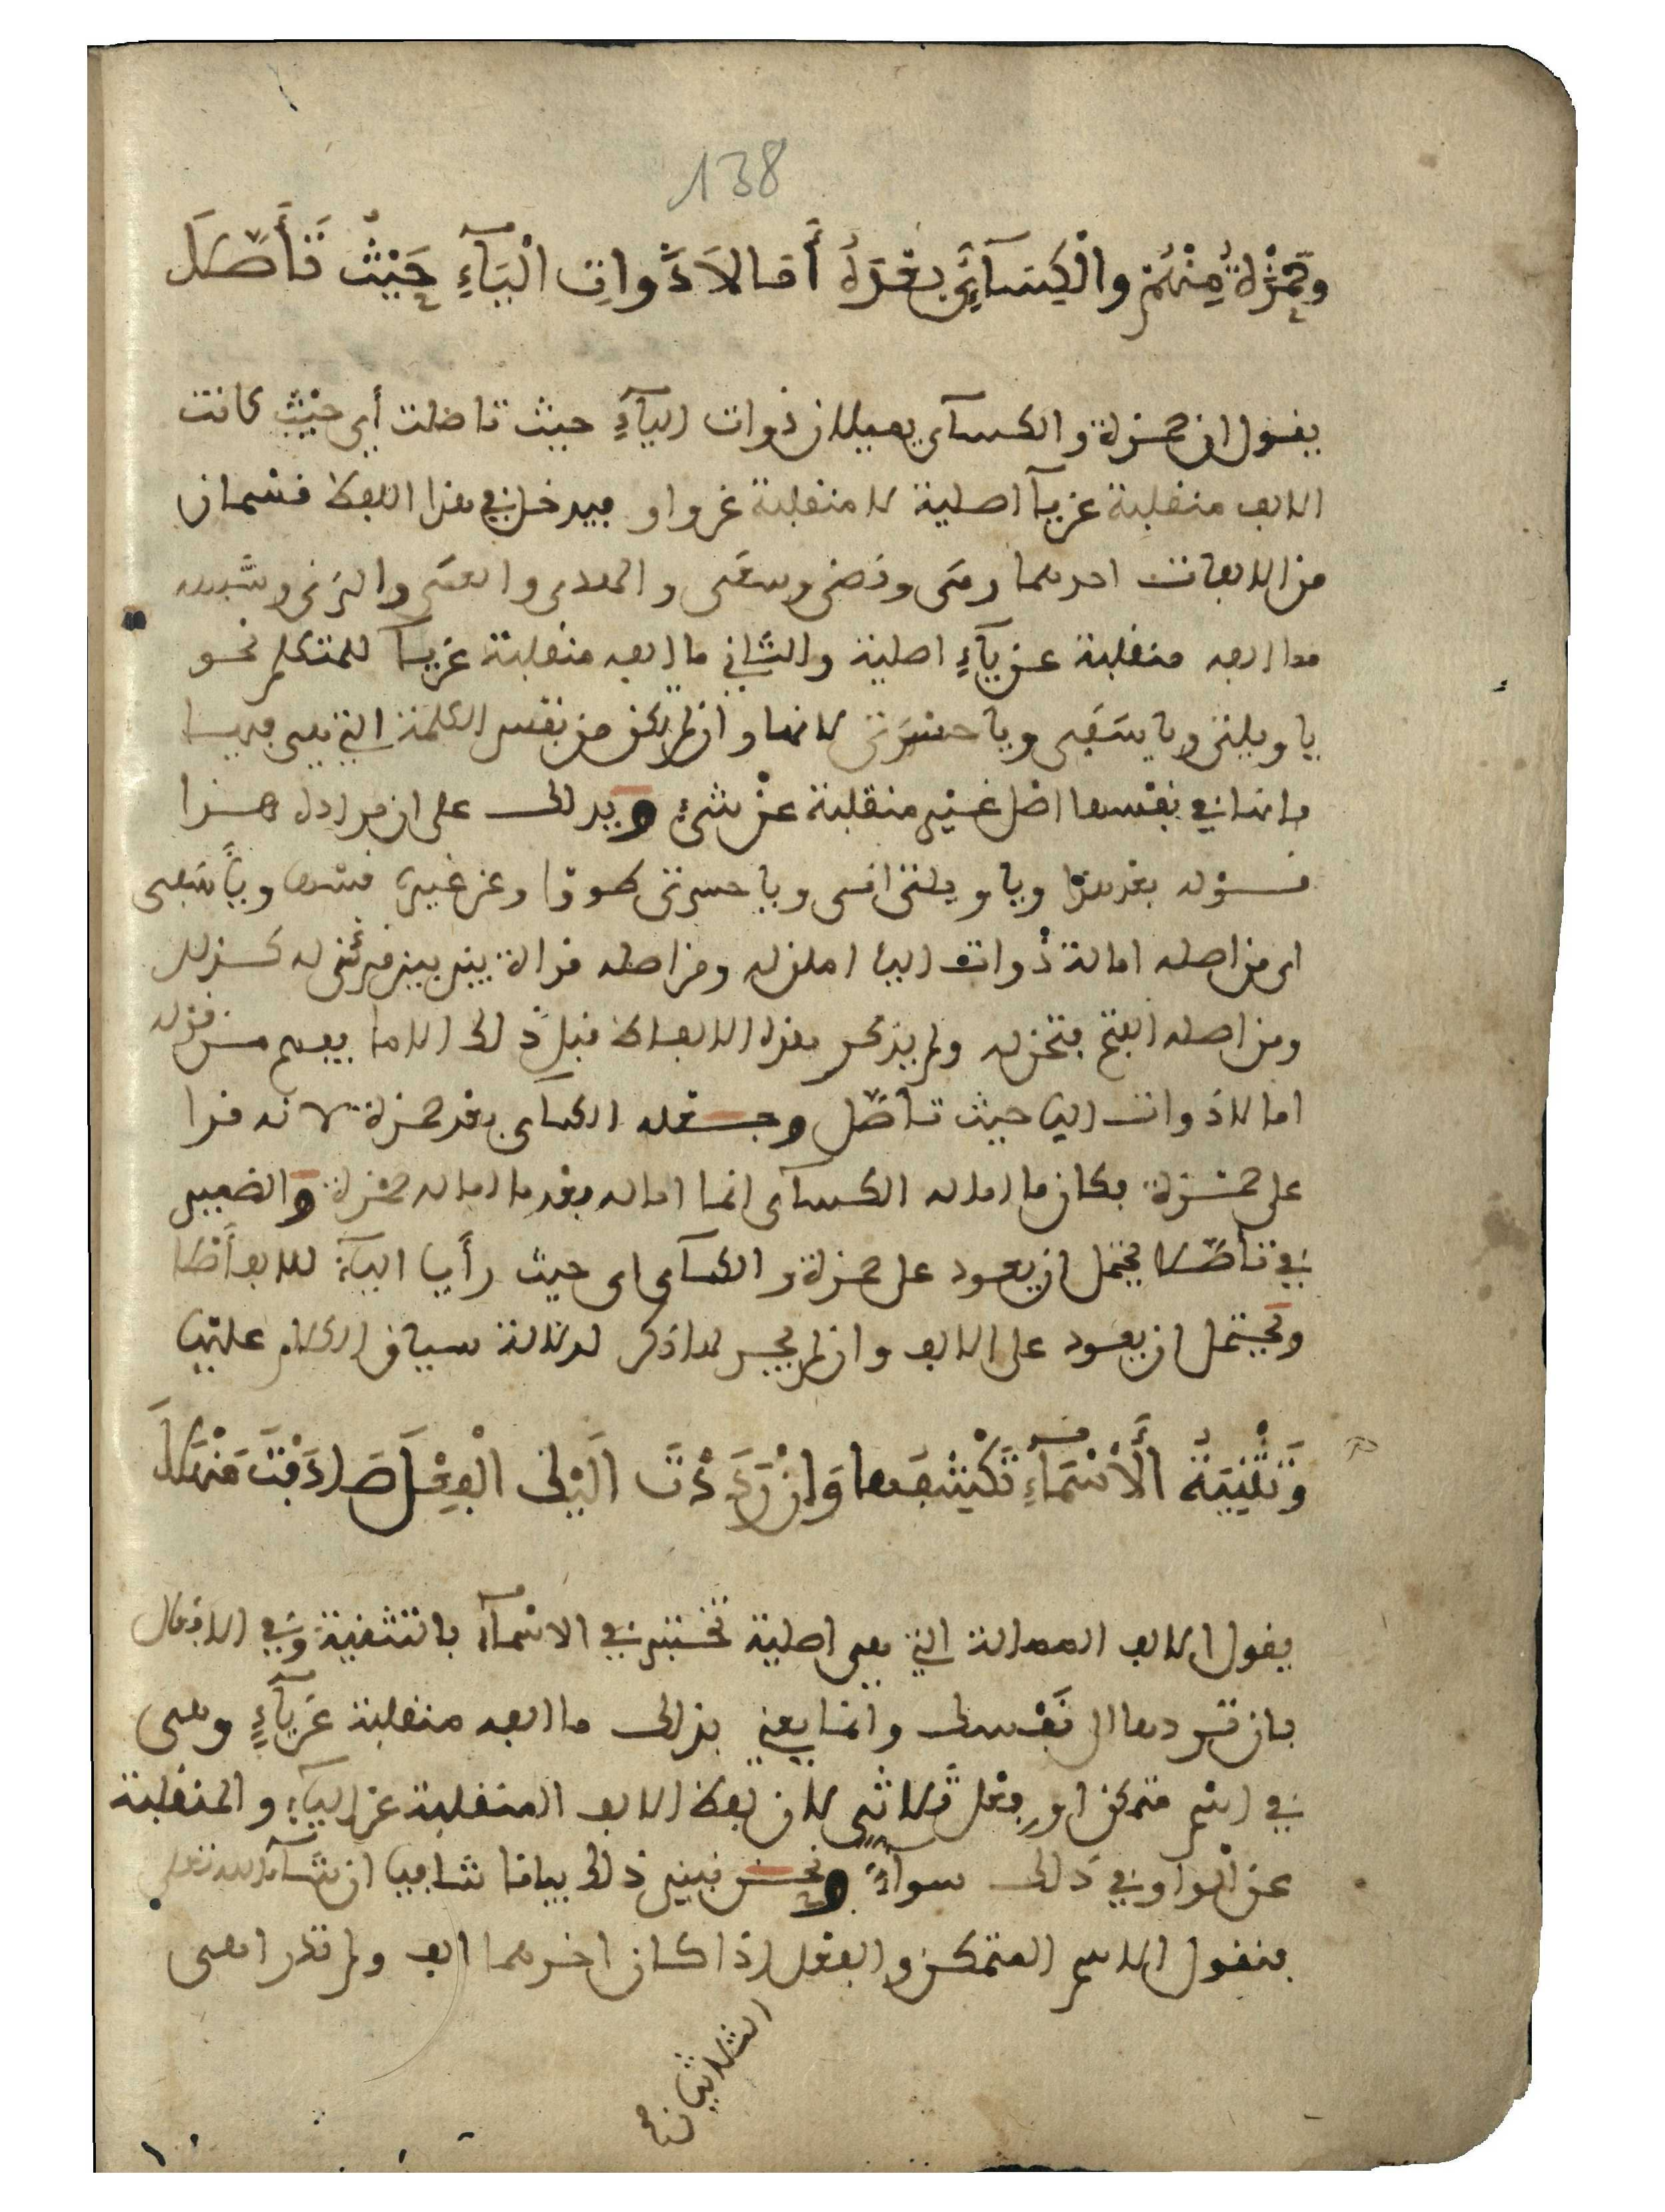 138
وَحَمْزَةُ مِنْهُمْ وَالْكِسَآئِيُّ بَعْدَهُ أَمَالَا ذَوَاتِ الْيَآءِ حَيْثُ تَأَصَّلَا
يقول ان حمزة والكسآي يميلان ذوات اليآءِ حيث تاصلت أي حيْث كانت
الالف منقلبة عن يآ اصلية لا منقلبة عن واو فيدخل في هذا اللفظ قسمان
من الالفات احدهما رمى وقضى وسعى والهدى والعمى والزنى وشبهه
مما الفه منقلبة عن يآءٍ اصلية والثاني ما الفه منقلبة عن يآ المتكلم نحو
يا ويلتى ويا سَفى ويا حسْرَتى لانها وان لم يكن من نفس الكلمة التي هي فيها
فانها في نفسها اصل غير منقلبة عن شيءٍ ويدلك على ان مراده هذا
قوله بعد هذا ويا ويلتى انى ويا حسرتى طووا وعن غيره قسها ويأسَفى
اي من اصله امالة ذوات اليا امال له ومن اصله قراة بين بين قرئت له كذلك
ومن اصله الفتح فتحن له ولم يذكر هذه الالفاظ قبل ذلك الا ما يفهم من قوله
امالا ذوات اليا حيث تأصّلا وجعله الكساى بعد حمزة لانه قرا
على حمْزة فكان ما اماله الكسآى انما اماله بعد ما اماله حمْزة والضمير
في تأصّلا يحتمل ان يعود على حمزة والكسآى اى حيث رأيا اليآء للالف أصلا
ويحْتمل ان يعود على الالف وان لم يجر لها ذكر لدلالة سياق الكلام عليها
وَتَثْنِيَةُ الْأَسْمَآءِ تَكْشِفُهَا وَإِنْ رَدَدْتَ إِلَيْكَ الْفِعْلَ صَادَفْتَ مَنْهَلَا
يقول الالف الممالة التي هي اصلية تختبر في الاسْمآء بالتثنية وفي الافعال
بان تردها الى نَفْسك وانما يعني بذلك ما الفه منقلبة عن يآءٍ وهى
في اسْم متمكن او فعْل ثلاثي لان لفظ الالف المنقلبة عن اليآءِ والمنقلبة
عن الْواو في ذلك سوآءٌ ونحن نبين ذلك بيانا شافيا ان شآ الله تعلى
فنقول الاسم المتمكن والفعْل اذا كان اخرهما الف ولم تدر اهى